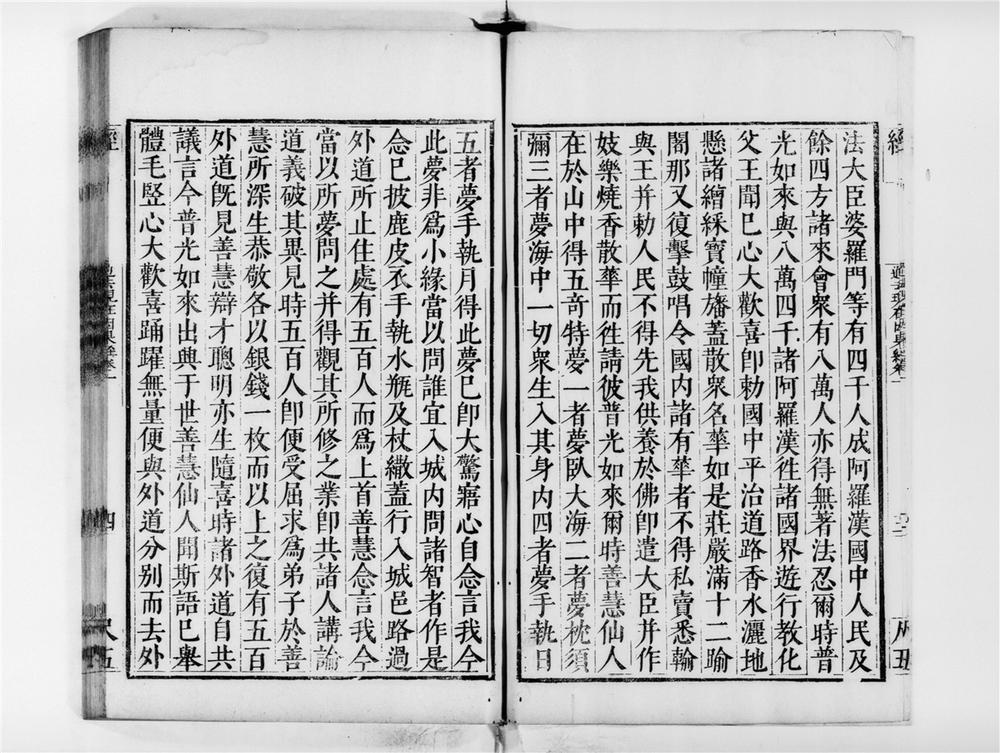 法大臣婆羅門等有四千人成阿羅漢國中人民及
餘四方諸來會衆有八萬人亦得無著法忍爾時普
光如來與八萬四千諸阿羅漢徃諸國界遊行教化
父王聞已心大歡喜卽勅國中平治道路香水灑地
懸諸繒綵寶幢旛蓋散衆名華如是莊嚴滿十二踰
闍那又復擊鼓唱令國內諸有華者不得私賣悉輸
與王幷勅人民不得先我供養於佛卽遣大臣幷作
妓樂燒香散華而徃請彼普光如來爾時善慧仙人
在於山中得五奇特夢一者夢臥大海二者夢枕須
彌三者夢海中一切衆生入其身內四者夢手執日
五者夢手執月得此夢已卽大驚寤心自念言我今
此夢非爲小緣當以問誰宜入城內問諸智者作是
念已披鹿皮衣手執水瓶及杖繖蓋行入城邑路過
外道所止住處有五百人而爲上首善慧念言我今
當以所夢問之幷得觀其所修之業卽共諸人講論
道義破其異見時五百人卽便受屈求爲弟子於善
慧所深生恭敬各以銀錢一枚而以上之復有五百
外道旣見善慧辯才聰明亦生隨喜時諸外道自共
議言今普光如來出興于世善慧仙人聞斯語已舉
體毛豎心大歡喜踊躍無量便與外道分別而去外
經
四
五